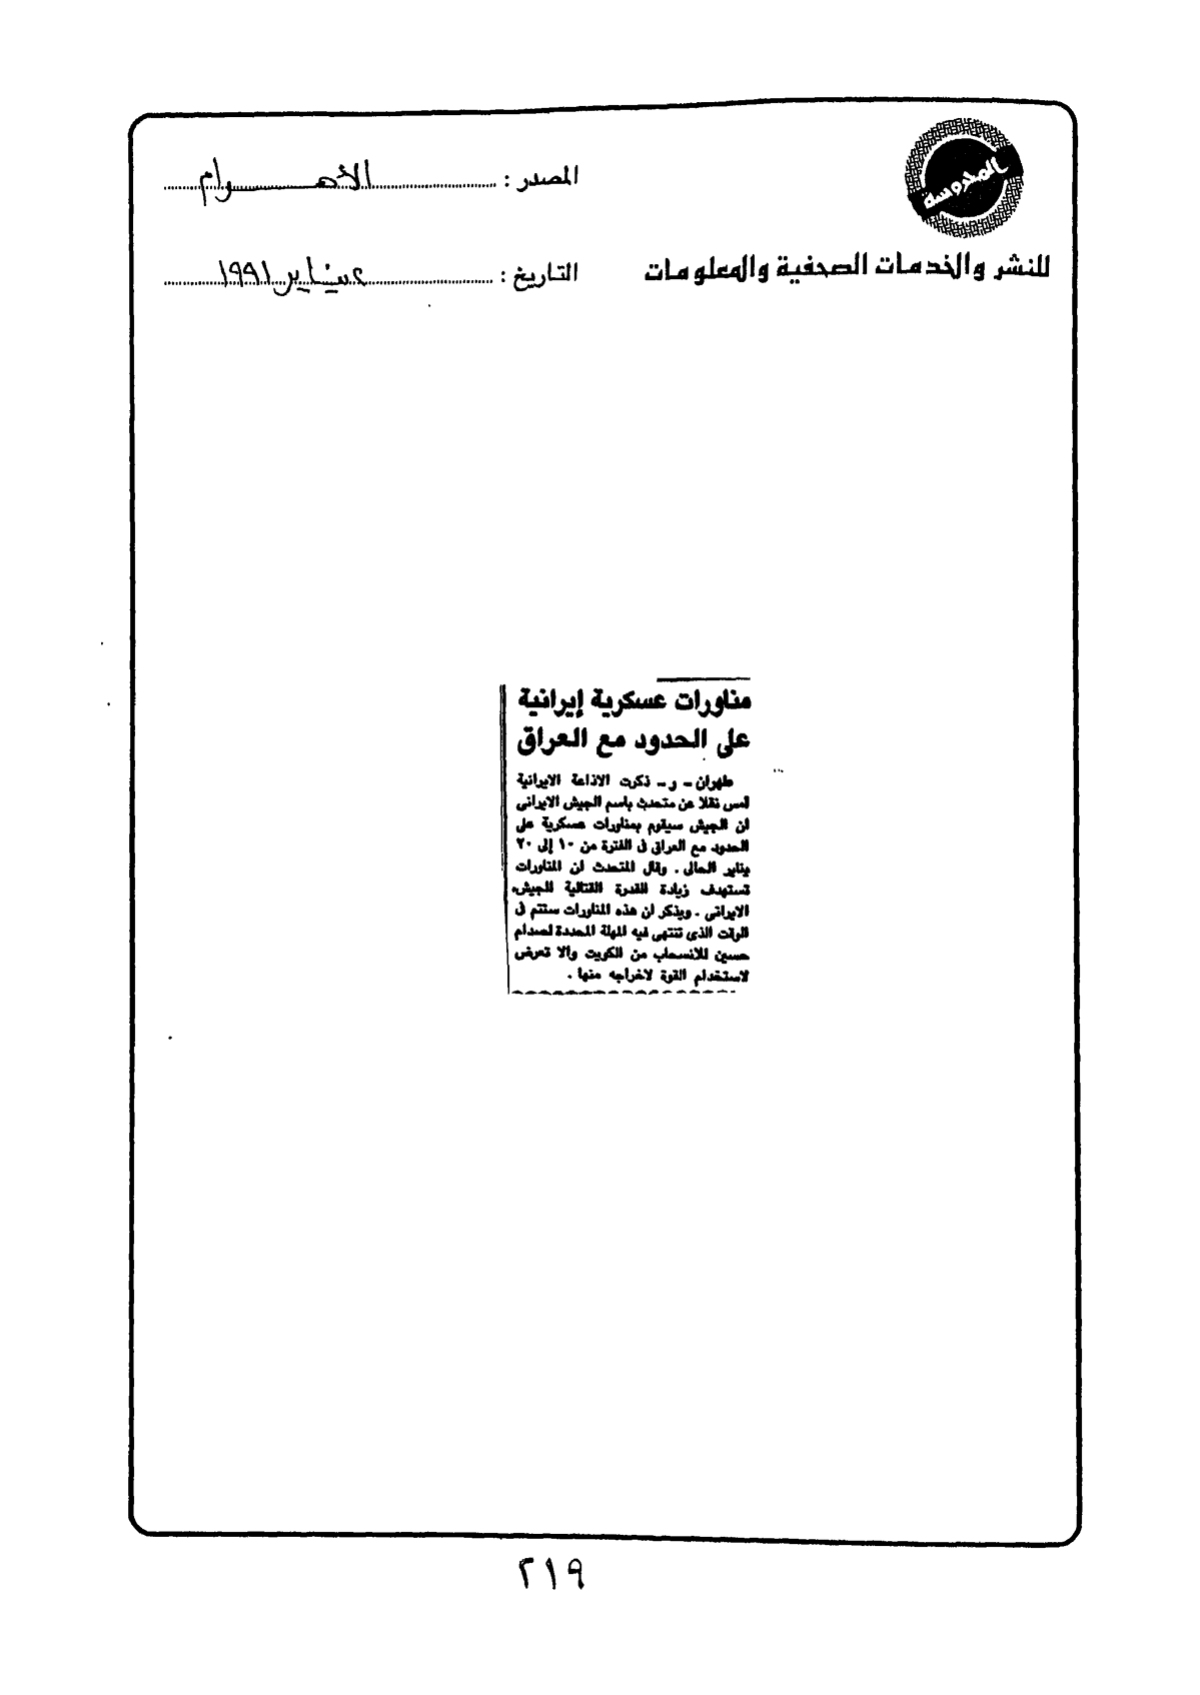 المحروسة
للنشر والخدمات الصحفية والمعلومات
المصدر : الأهــرام
التاريخ : ٤ يناير ١٩٩١
مناورات عسكرية إيرانية
على الحدود مع العراق
طهران - ر - ذكرت الاذاعة الايرانية
امس نقلا عن متحدث باسم الجيش الايرانى
ان الجيش سيقوم بمناورات عسكرية على
الحدود مع العراق فى الفترة من ١٠ إلى ٢٠
يناير الحالى . وقال المتحدث ان المناورات
تستهدف زيادة القدرة القتالية للجيش
الايرانى . ويذكر ان هذه المناورات ستتم فى
الوقت الذى تنتهى فيه المهلة المحددة لصدام
حسين للانسحاب من الكويت والا تعرض
لاستخدام القوة لاخراجه منها .
٢١٩